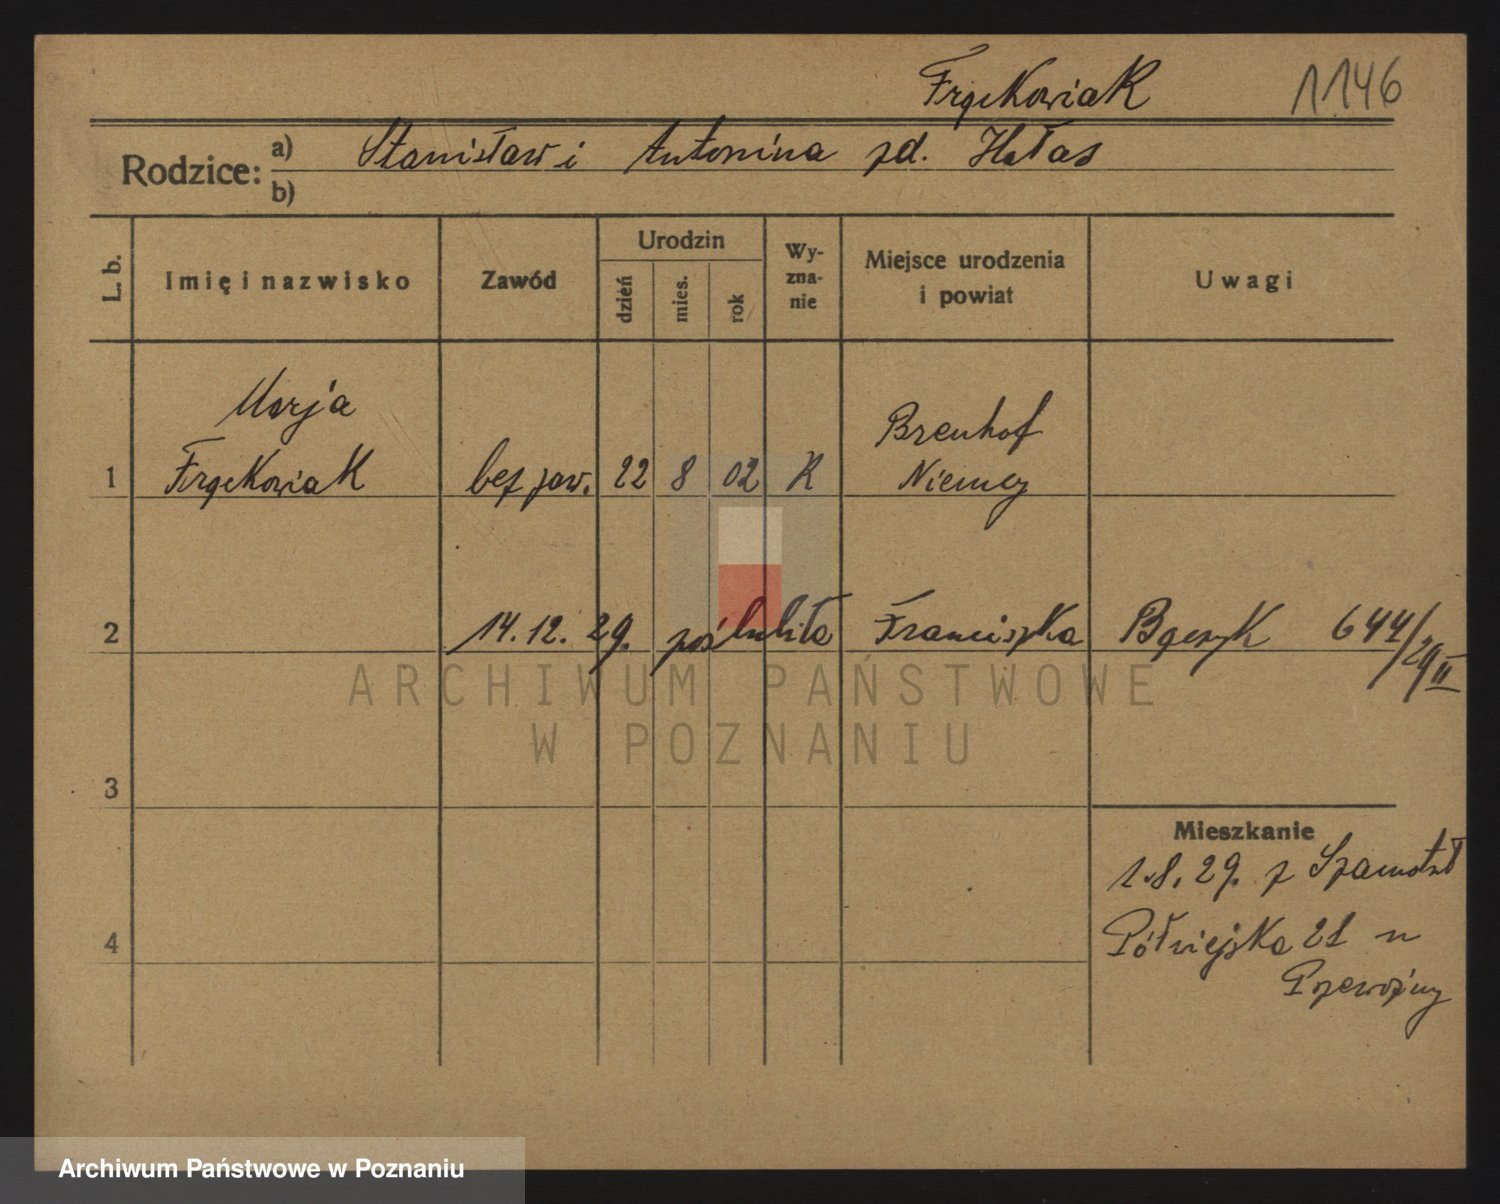 Frąckowiak 1146
Rodzice: a) Stanisław i Antonina zd. Hałas
b)
L. b. Imię i nazwisko Zawód Urodzin dzień mies. rok Wy-zna-nie Miejsce urodzenia i powiat Uwagi
Marja
Brenhof
1 Frąckowiak bez zaw. 22 8 02 K Niemcy
2 14.12.29. poślubiła Franciszka Bączyk 644/29 II
ARCHIWUM PAŃSTWOWE
W POZNANIU
3
Mieszkanie
1.8.29. z Szamotuł
4 Półwiejska 21 u
Archiwum Państwowe w Poznaniu